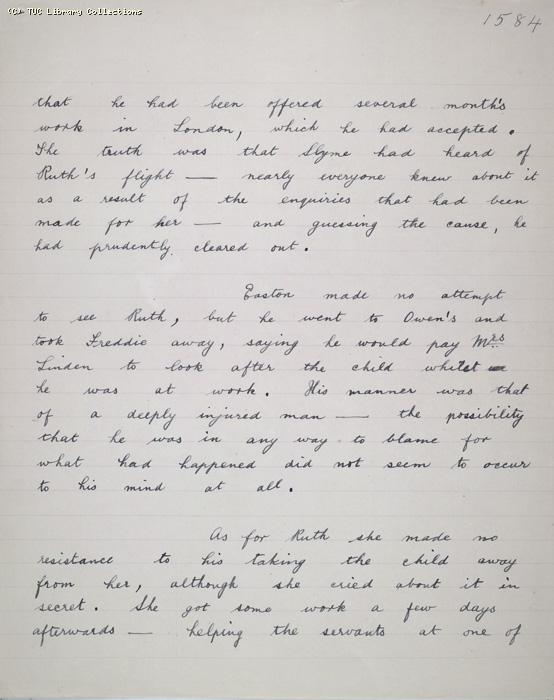 (C) TUC Library Collections
1584
that he had been offered several month's
work in London, which he had accepted.
The truth was that Slyme had heard of
Ruth's flight — nearly everyone knew about it
as a result of the enquiries that had been
made for her — and guessing the cause, he
had prudently cleared out.
Easton made no attempt
to see Ruth, but he went to Owen's and
took Freddie away, saying he would pay Mrs
Linden to look after the child whilst
he was at work. His manner was that
of a deeply injured man — the possibility
that he was in any way to blame for
what had happened did not seem to occur
to his mind at all.
As for Ruth she made no
resistance to his taking the child away
from her, although she cried about it in
secret. She got some work a few days
afterwards — helping the servants at one of